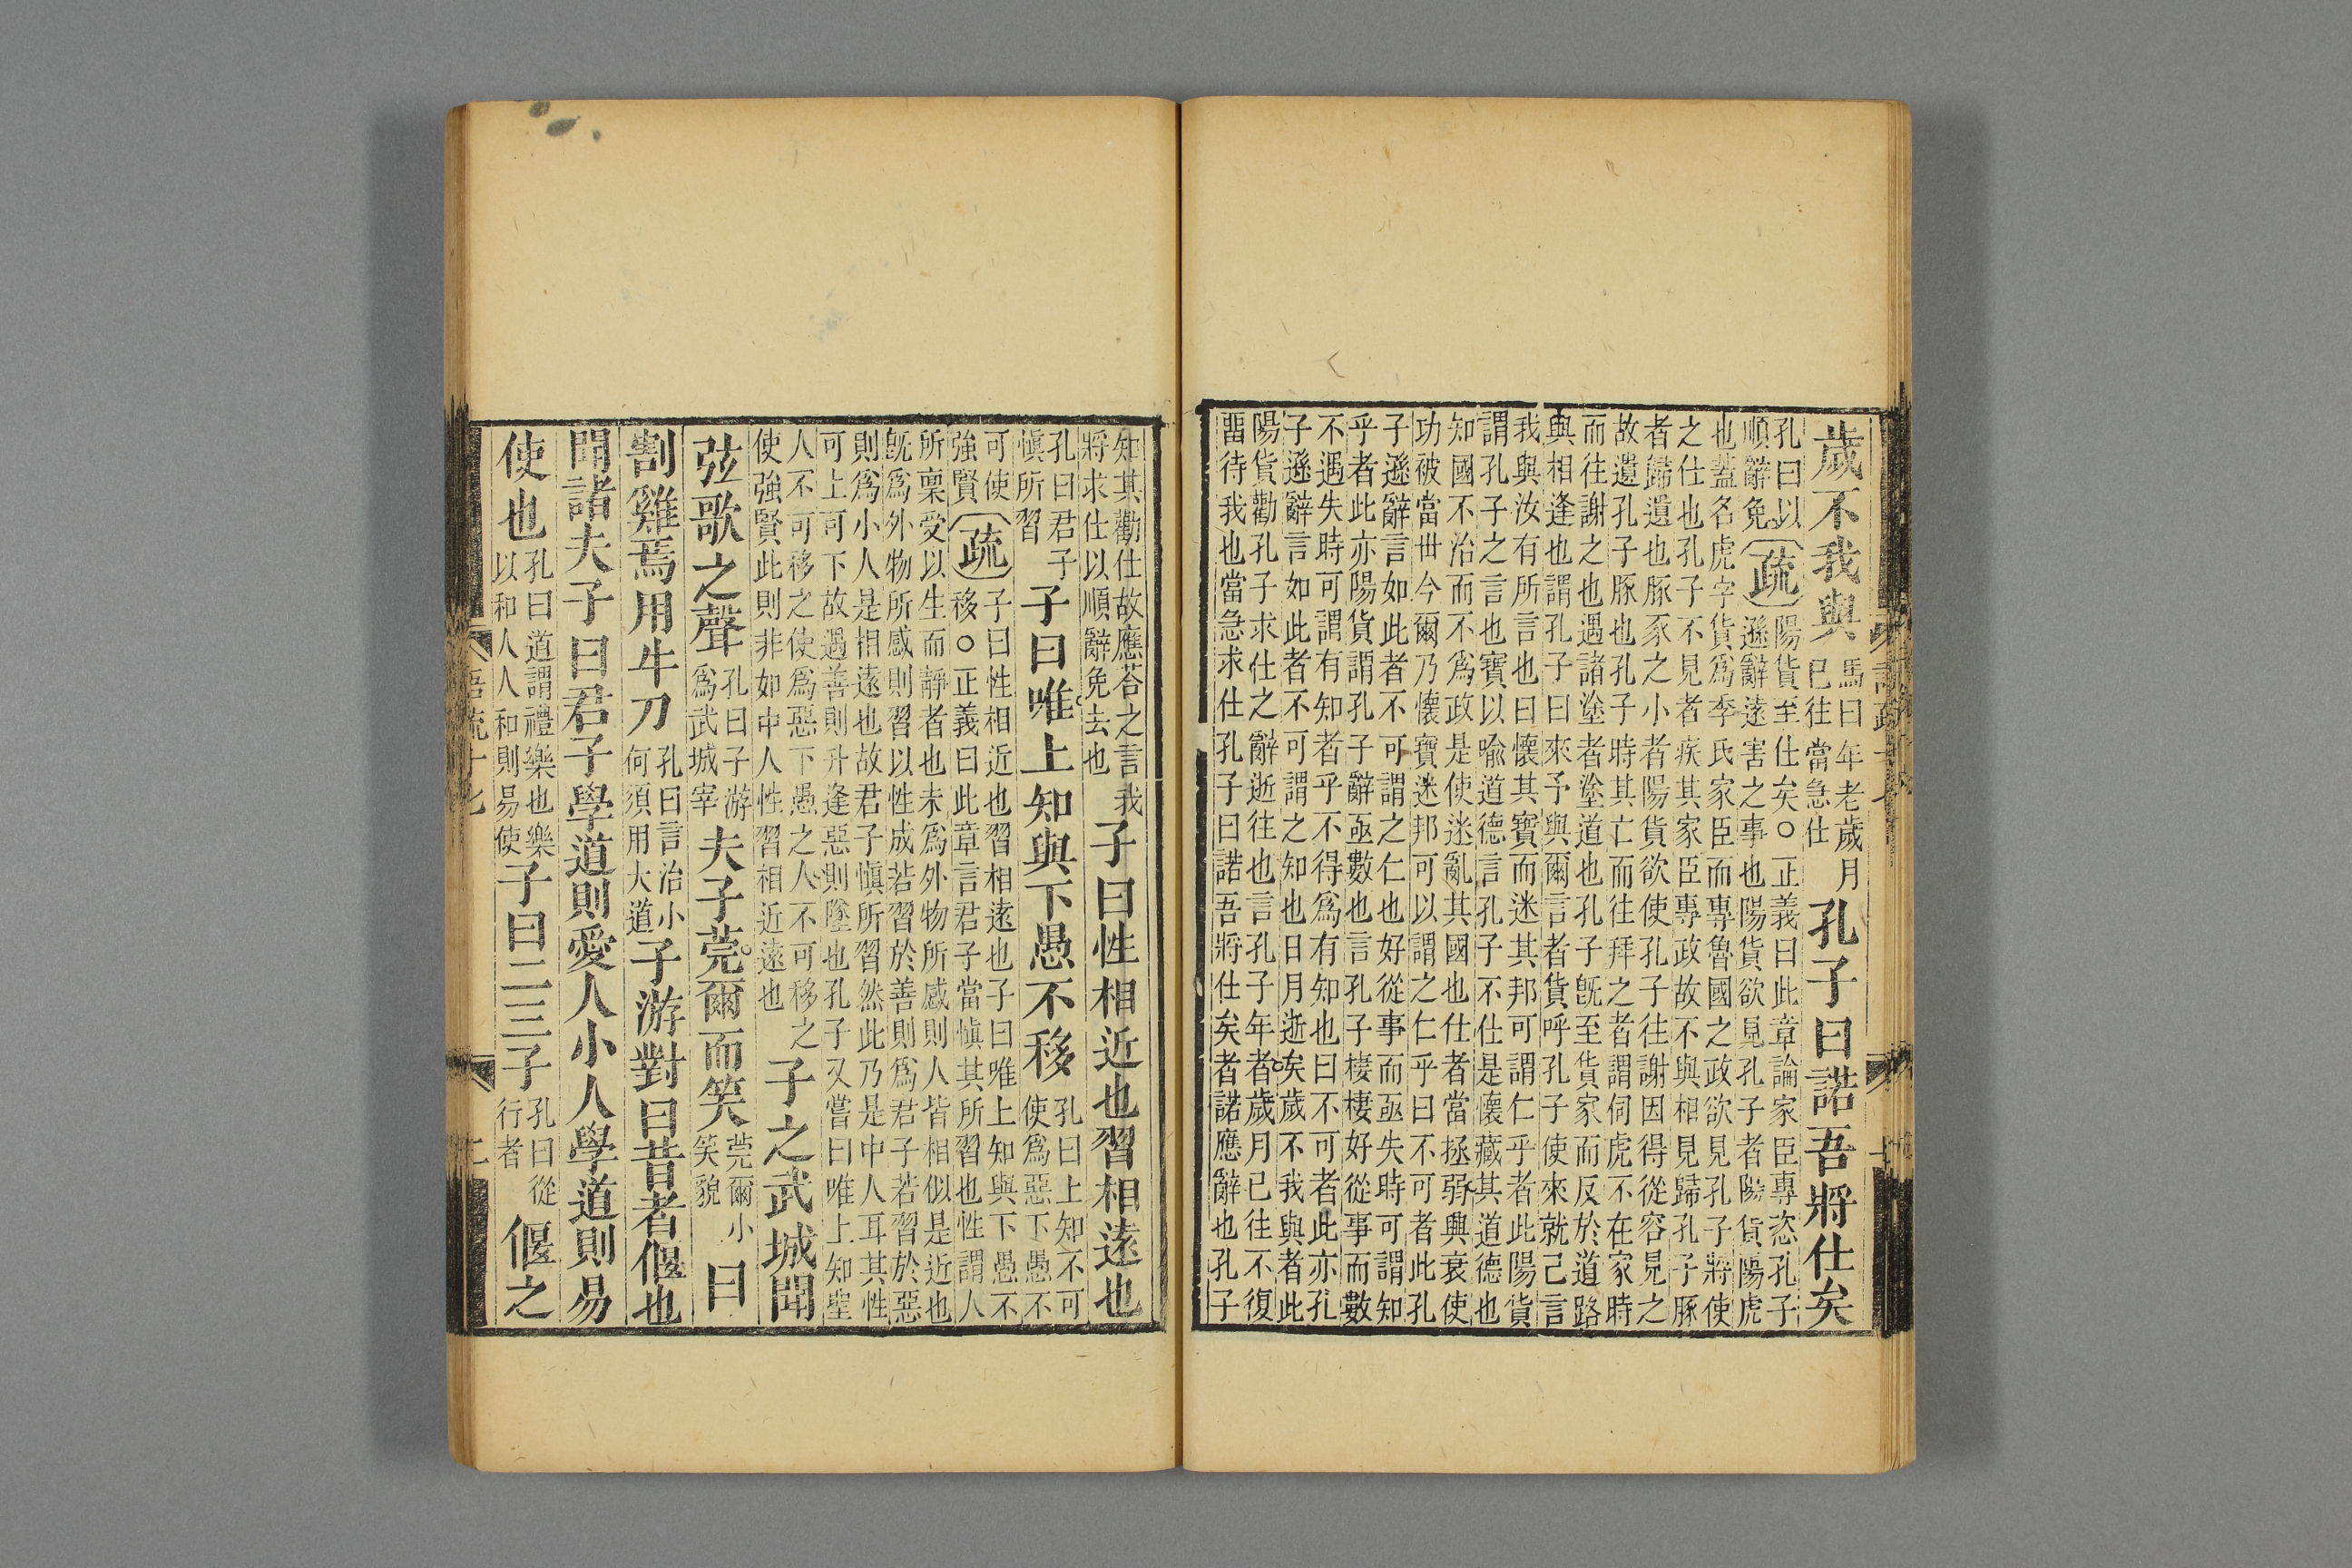 歲不我與馬曰年老歲月已往當急仕孔子曰諾吾將仕矣
孔曰以順辭免(疏)陽貨至仕矣○正義曰此章論家臣專恣孔子
遜辭遠害之事也陽貨欲見孔子者陽貨陽虎
也蓋名虎字貨爲季氏家臣而專魯國之政欲見孔子將使
之仕也孔子不見者疾其家臣專政故不與相見歸孔子豚
者歸遺也豚豕之小者陽貨欲使孔子往謝因得從容見之
故遺孔子豚也孔子時其亡而往拜之者謂伺虎不在家時
而往謝之也遇諸塗者塗道也孔子旣至貨家而反於道路
與相逢也謂孔子曰來予與爾言者貨呼孔子使來就己言
我與汝有所言也曰懷其寶而迷其邦可謂仁乎者此陽貨
謂孔子之言也寶以喻道德言孔子不仕是懷藏其道德也
知國不治而不爲政是使迷亂其國也仕者當拯弱興衰使
功被當世今爾乃懷寶迷邦可以謂之仁乎曰不可者此孔
子遜辭言如此者不可謂之仁也好從事而亟失時可謂知
乎者此亦陽貨謂孔子辭亟數也言孔子棲棲好從事而數
不遇失時可謂有知者乎不得爲有知也曰不可者此亦孔
子遜辭言如此者不可謂之知也日月逝矣歲不我與者此
陽貨勸孔子求仕之辭逝往也言孔子年者歲月已往不復
畱待我也當急求仕孔子曰諾吾將仕矣者諾應辭也孔子
知其勸仕故應荅之言我將求仕以順辭免去也子曰性相近也習相遠也
孔曰君子愼所習子曰唯上知與下愚不移孔曰上知不可使爲惡下愚不
可使強賢(疏)子曰性相近也習相遠也子曰唯上知與下愚不
移○正義曰此章言君子當愼其所習也性謂人
所稟受以生而靜者也未爲外物所感則人皆相似是近也
旣爲外物所感則習以性成若習於善則爲君子若習於惡
則爲小人是相遠也故君子愼所習然此乃是中人耳其性
可上可下故遇善則升逢惡則墜也孔子又嘗曰唯上知聖
人不可移之使爲惡下愚之人不可移之使強賢此則非如中人性習相近遠也子之武城聞
弦歌之聲孔曰子游爲武城宰夫子莞爾而笑莞爾小笑貌曰
割雞焉用牛刀孔曰言治小何須用大道子游對曰昔者偃也
聞諸夫子曰君子學道則愛人小人學道則易
使也孔曰道謂禮樂也樂以和人人和則易使子曰二三子孔曰從行者偃之